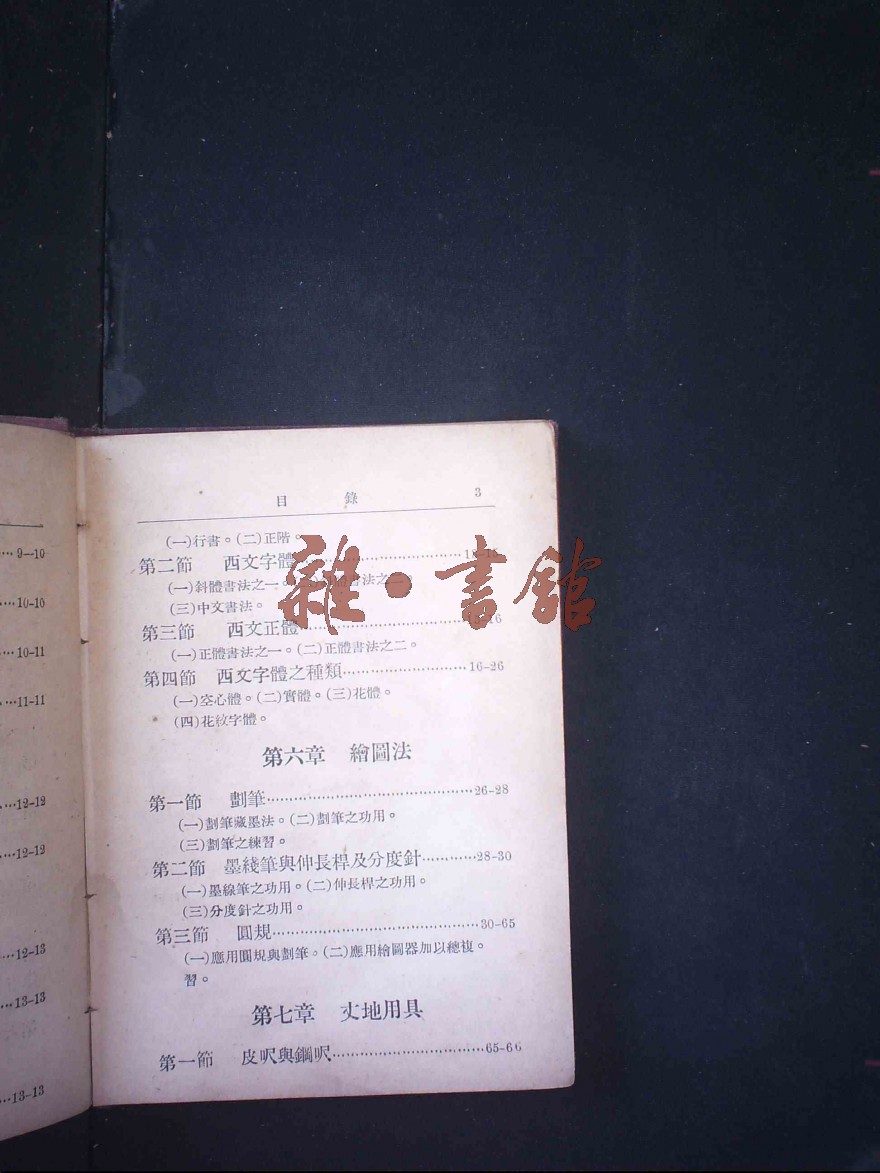 9—10
10-10
10-11
11-11
12-12
12-12
12-13
13-13
13-13
目 錄 3
(一)行書。(二)正階。
第二節 西文字體
(一)斜體書法之一。
(三)中文書法。
第三節 西文正體
(一)正體書法之一。(二)正體書法之二。
第四節 西文字體之種類 16-26
(一)空心體。(二)實體。(三)花體。
(四)花紋字體。
第六章 繪圖法
第一節 劃筆 26-28
(一)劃筆藏墨法。(二)劃筆之功用。
(三)劃筆之練習。
第二節 墨綫筆與伸長桿及分度針 28-30
(一)墨線筆之功用。(二)伸長桿之功用。
(三)分度針之功用。
第三節 圓規 30-65
(一)應用圓規與劃筆。(二)應用繪圖器加以總複
習。
第七章 丈地用具
第一節 皮呎與鋼呎 65-66
雜·書館